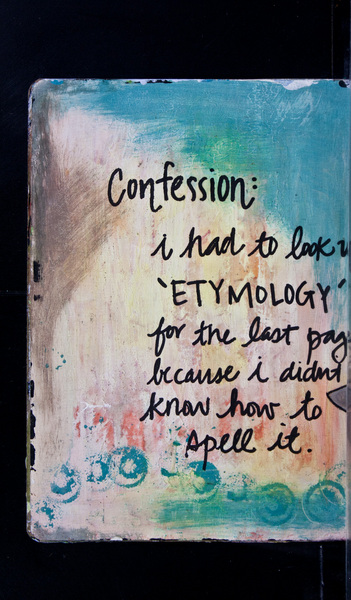 Confession:
i had to look
'ETYMOLOGY'
for the last pag
because i didn't
know how to
spell it.